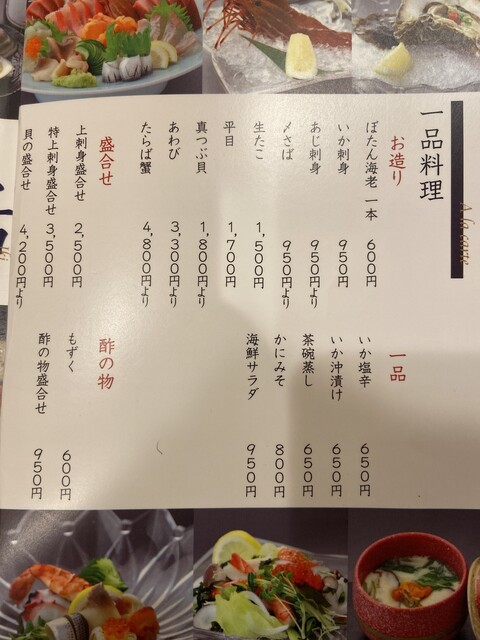 一品料理
A la carte
お造り
ぼたん海老 一本 600円
いか刺身 950円
あじ刺身 950円より
〆さば 950円より
生たこ 1,500円
平目 1,700円
真つぶ貝 1,800円より
あわび 3,300円より
たらば蟹 4,800円より
盛合せ
上刺身盛合せ 2,500円
特上刺身盛合せ 3,500円
貝の盛合せ 4,200円より
一品
いか塩辛 650円
いか沖漬け 650円
茶碗蒸し 650円
かにみそ 800円
海鮮サラダ 950円
酢の物
もずく 600円
酢の物盛合せ 950円